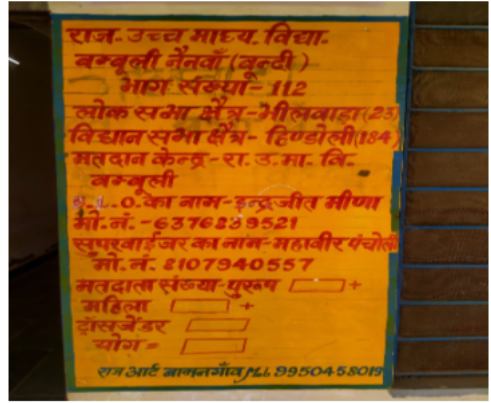 राज. उच्च माध्य. विद्या.
बम्बूली नैनवाँ (बून्दी)
भाग संख्या - 112
लोक सभा क्षैत्र - भीलवाडा (23)
विधान सभा क्षैत्र - हिण्डोली (184)
मतदान केन्द्र - रा. उ. मा. वि.
बम्बूली
B.L.O. का नाम - इन्द्रजीत मीणा
मो. नं. - 6376839521
सुपरवाईजर का नाम - महावीर पंचोली
मो. नं. 8107940557
मतदाता संख्या - पुरूष +
महिला +
ट्रांसजेंडर
योग =
राज आर्ट बामनगाँव Mob. 9950458019